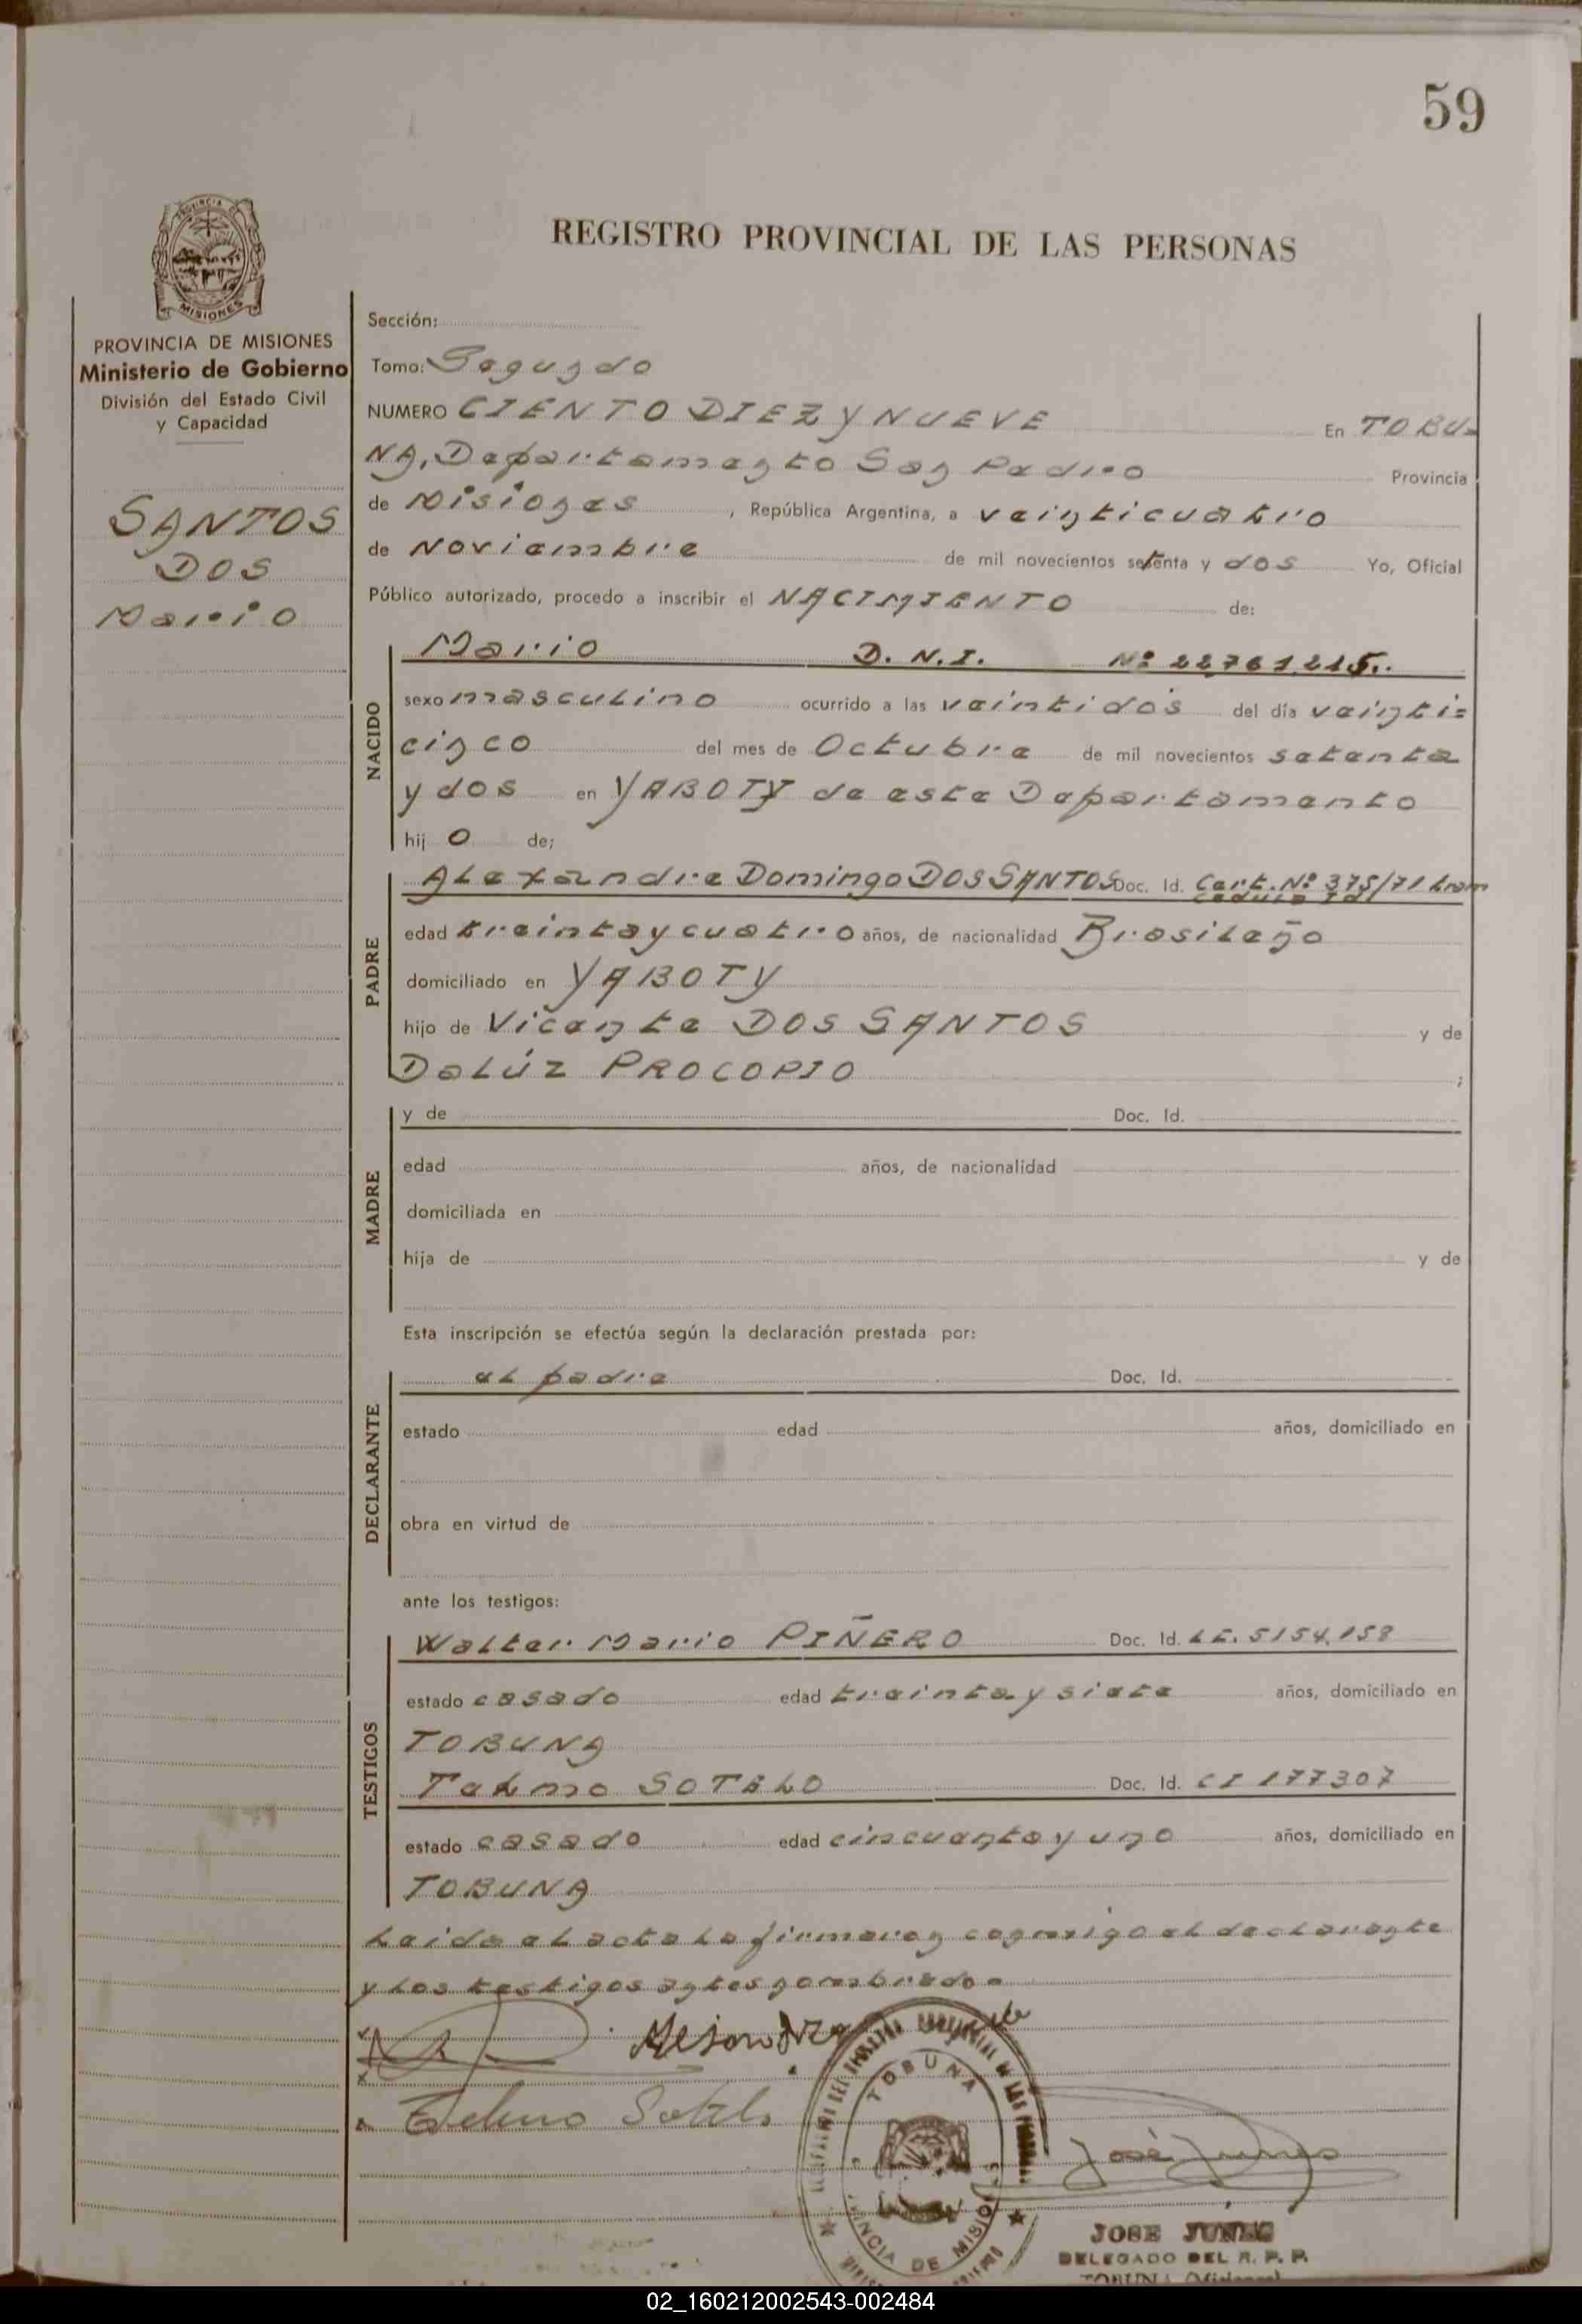 59
PROVINCIA DE
MISIONES
REGISTRO PROVINCIAL DE LAS PERSONAS
PROVINCIA DE MISIONES
Ministerio de Gobierno
División del Estado Civil
y Capacidad
SANTOS
DOS
Mario
Sección:
Tomo: Segundo
NUMERO CIENTO DIEZ y NUEVE En TOBU-
NA, Departamento San Pedro Provincia
de Misiones, República Argentina, a veinticuatro
de Noviembre de mil novecientos setenta y dos Yo, Oficial
Público autorizado, procedo a inscribir el NACIMIENTO de:
NACIDO
Mario D. N. I. Nº 22.761.215.
sexo masculino ocurrido a las veintidós del día veinti=
cinco del mes de Octubre de mil novecientos setenta
y dos en YABOTY de este Departamento
hij o de;
PADRE
Alexandre Domingo DOS SANTOS Doc. Id. Cert. Nº 375/71 tram
edad treinta y cuatro años, de nacionalidad Brasileño
domiciliado en YABOTY
hijo de Vicente DOS SANTOS y de
Dalúz PROCOPIO ;
MADRE
y de Doc. Id.
edad años, de nacionalidad
domiciliada en
hija de y de
Esta inscripción se efectúa según la declaración prestada por:
DECLARANTE
el padre Doc. Id.
estado edad años, domiciliado en
obra en virtud de
ante los testigos:
TESTIGOS
Walter Mario PIÑERO Doc. Id. LE. 5154.158
estado casado edad treinta y siete años, domiciliado en
TOBUNA
Telmo SOTELO Doc. Id. CI 177307
estado casado edad cincuenta y uno años, domiciliado en
TOBUNA
Leida el acta la firmaron conmigo el declarante
y los testigos antes nombrado=
Telmo Sotelo
TOBUNA
José Junes
JOSE JUNES
DELEGADO DEL R. P. P.
TOBUNA (Misiones)
02_160212002543-002484